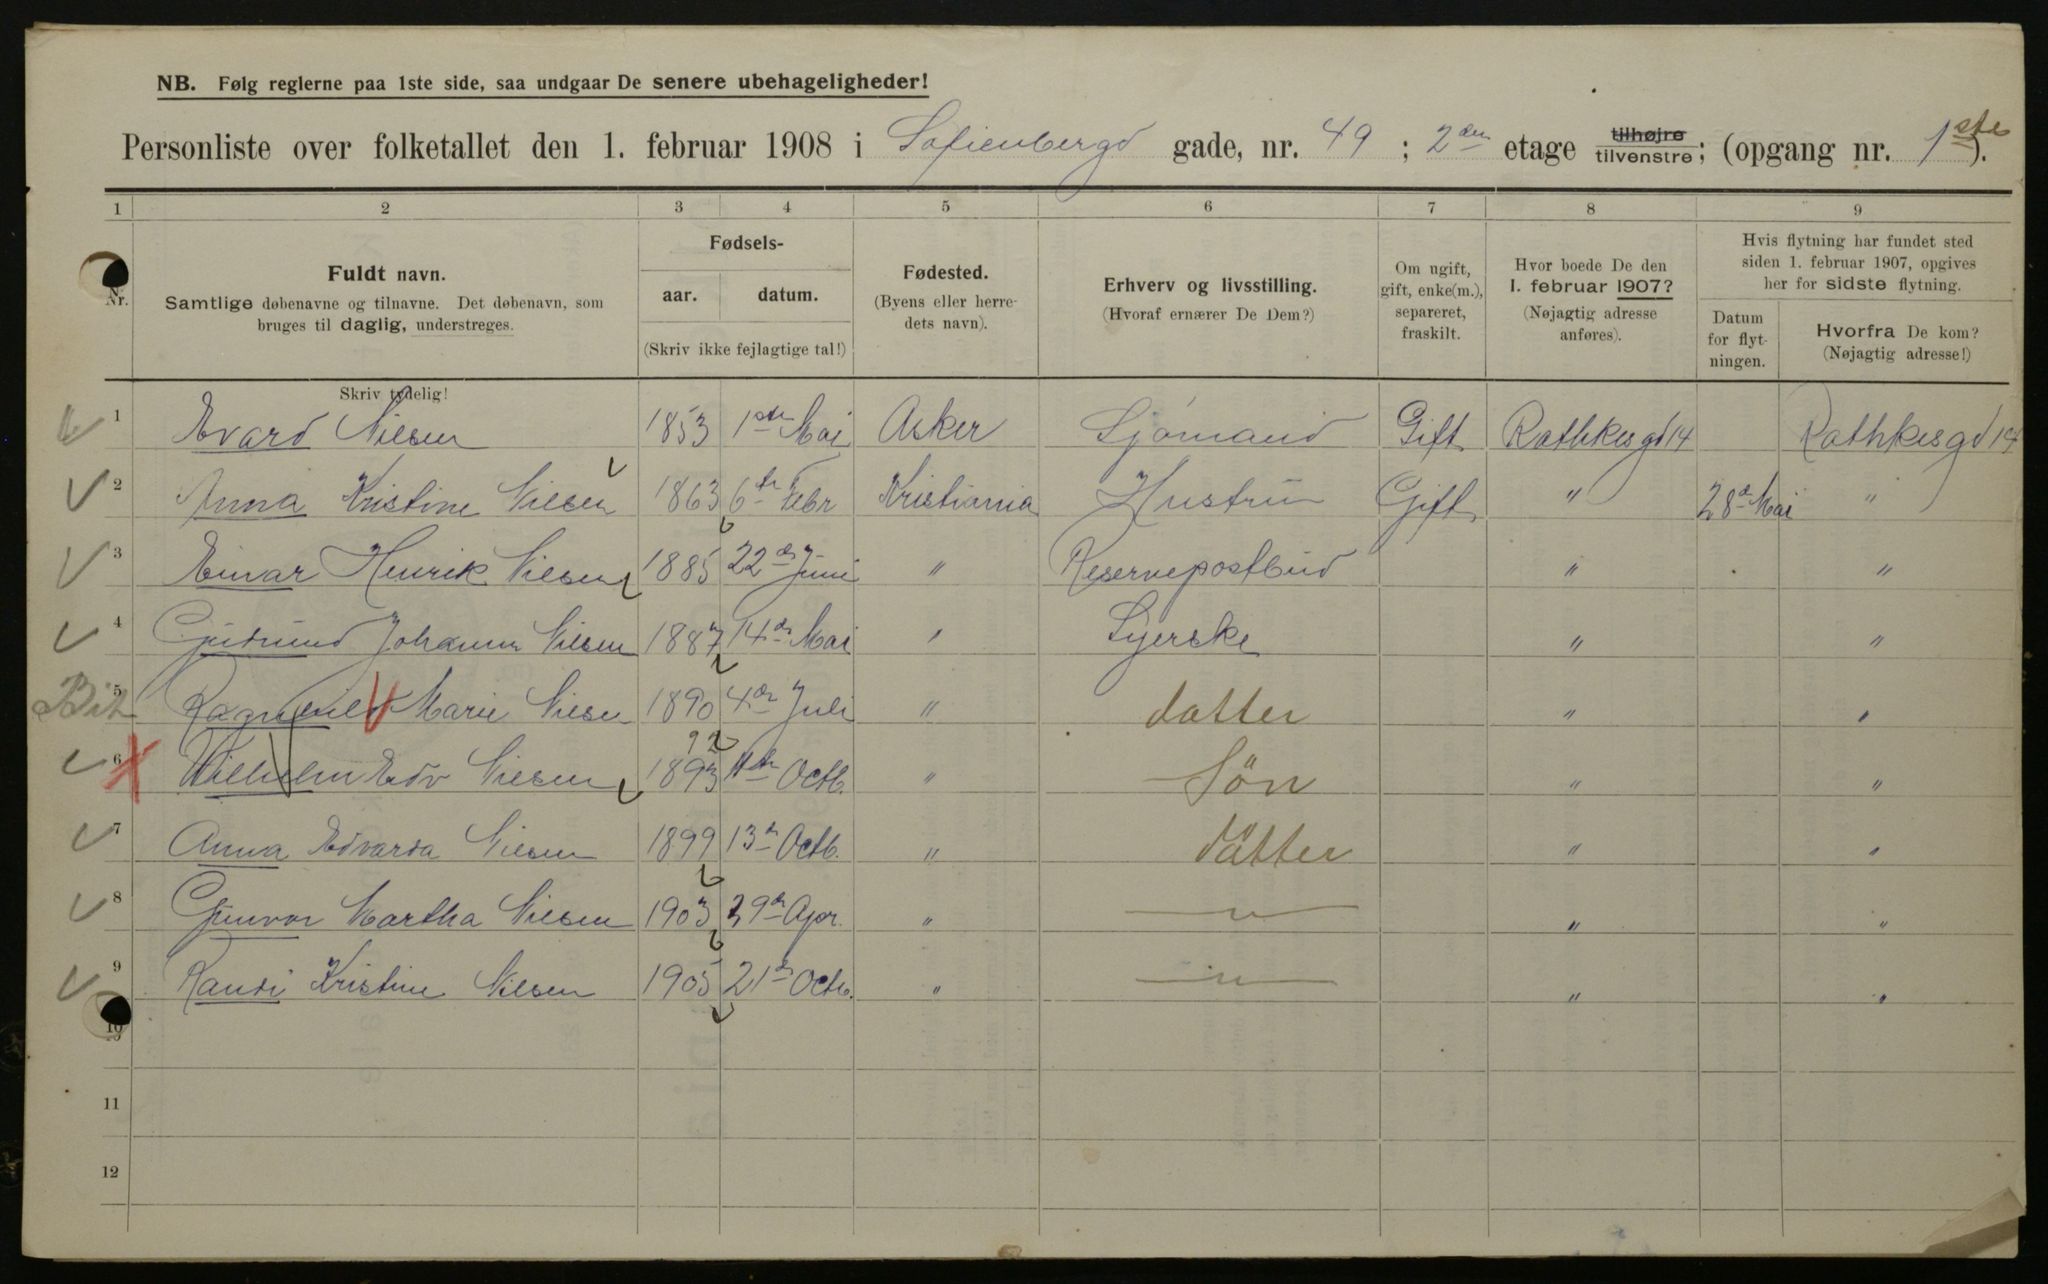 NB. Følg reglerne paa 1ste side, saa undgaar De senere ubehageligheder!
Personliste over folketallet den 1. februar 1908 i Sofienbergd gade, nr. 49 ; 2den etage tilhøjre tilvenstre; (opgang nr. 1ste).
1 2 3 4 5 6 7 8 9
Nr.
Fuldt navn.
Samtlige døbenavne og tilnavne. Det døbenavn, som
bruges til daglig, understreges.
Skriv tydelig!
Fødsels-
aar. datum.
(Skriv ikke fejlagtige tal!)
Fødested.
(Byens eller herre-
dets navn).
Erhverv og livsstilling.
(Hvoraf ernærer De Dem?)
Om ugift,
gift, enke(m.),
separeret,
fraskilt.
Hvor boede De den
1. februar 1907?
(Nøjagtig adresse
anføres).
Hvis flytning har fundet sted
siden 1. februar 1907, opgives
her for sidste flytning.
Datum
for flyt-
ningen.
Hvorfra De kom?
(Nøjagtig adresse!)
1 Evard Nilsen 1853 1ste Mai Asker Sjömand Gift Rathkesgd 14 Rathkesgd 14
2 Anna Kristine Nilsen 1863 6te Febr Kristiania Hustru Gift " 28d Mai "
3 Einar Henrik Nilsen 1885 22de Juni " Reservepostbud " "
4 Gudrund Johanne Nilsen 1887 14de Mai " Syerske " "
Bit 5 Ragnhild Marie Nilsen 1890 4de Juli " datter " "
92
6 Wilhelm Edv Nilsen 1893 11te Octb. " Sön " "
7 Anna Edvarda Nilsen 1899 13d Octb. " datter " "
8 Gunvor Martha Nilsen 1903 29de Apr. " — " — " "
9 Randi Kristine Nilsen 1905 21de Octb. " — " — " "
10
11
12